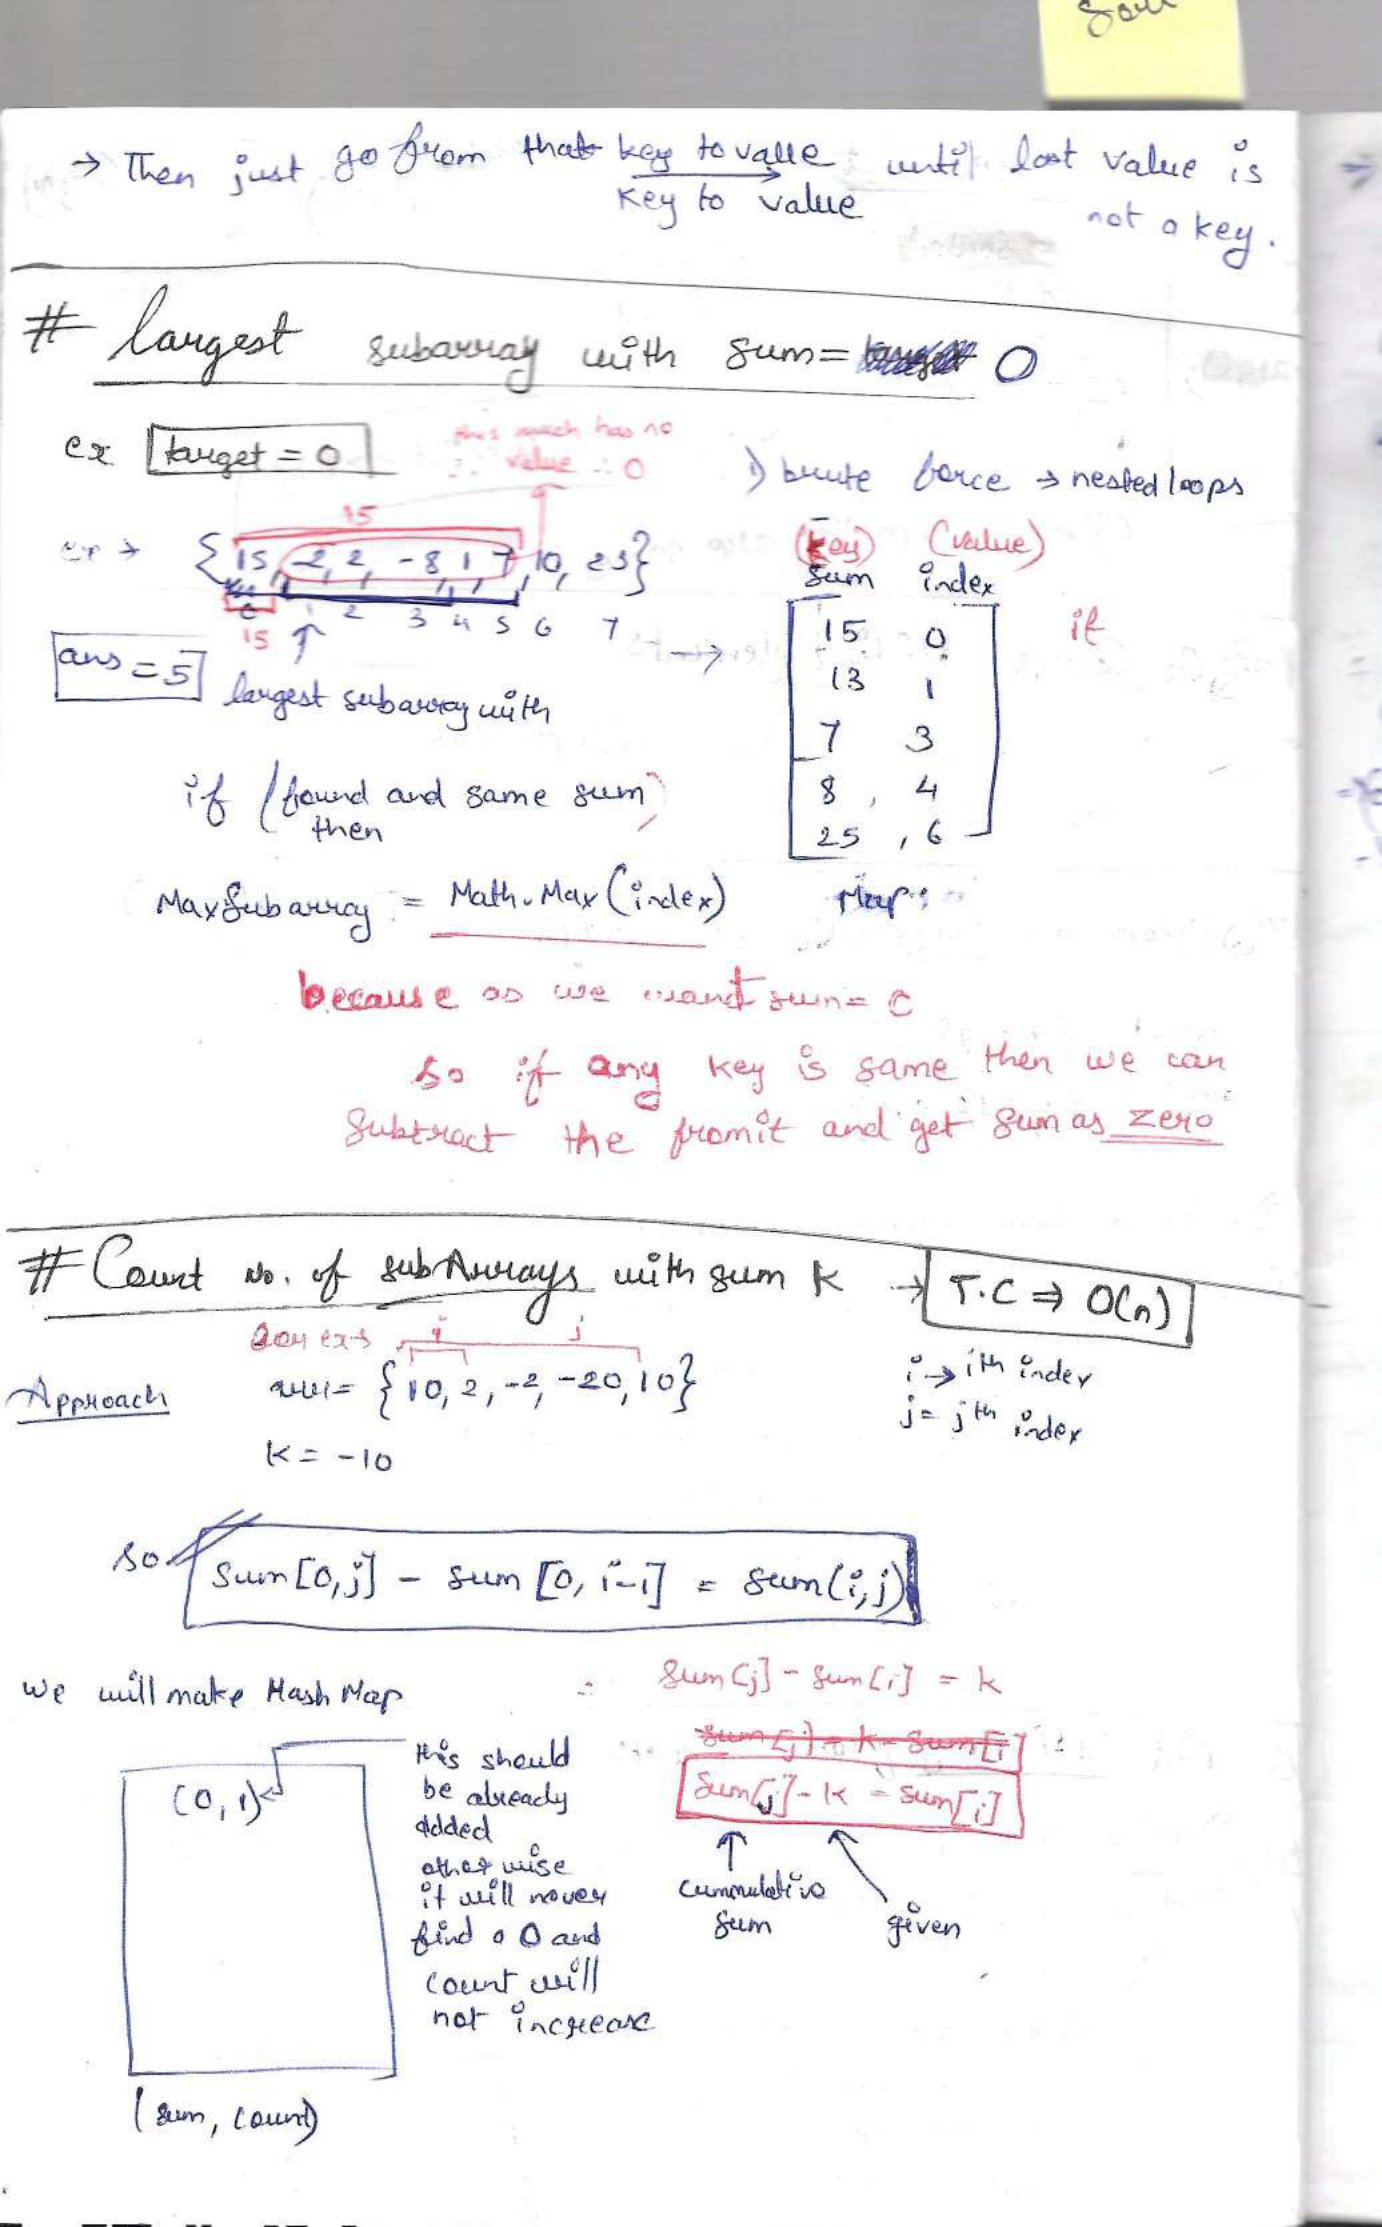 → Then just go from that key to value until last value is
Key to value
not a key.
# largest subarray with sum= 0
ex target = 0
this much has no
∴ value ∴ 0
1) brute force → nested loops
15
ex → {15, -2, 2, -8, 1, 7, 10, 23}
0 1 2 3 4 5 6 7
15 ↑
ans = 5
largest subarray with
(key) (value)
Sum index
15 0
13 1
7 3
8 , 4
25 , 6
Map
if
if (found and same sum)
then
MaxSubarray = Math.Max(index)
because as we want sum= 0
so if any key is same then we can
Subtract the from it and get sum as zero
# Count No. of subArrays with sum K → T.C ⇒ O(n)
for ex→ i j
Approach arr= {10, 2, -2, -20, 10}
i → ith index
j = jth index
K = -10
so Sum[0,j] - sum [0, i-1] = sum(i,j)
we will make Hash Map
∴ Sum[j] - Sum[i] = k
sum[j] = k - sum[i]
Sum[j] - k = sum[i]
↑ cummulative
sum
given
(0,1)
this should
be already
added
otherwise
it will never
find a 0 and
count will
not increase
(sum, count)